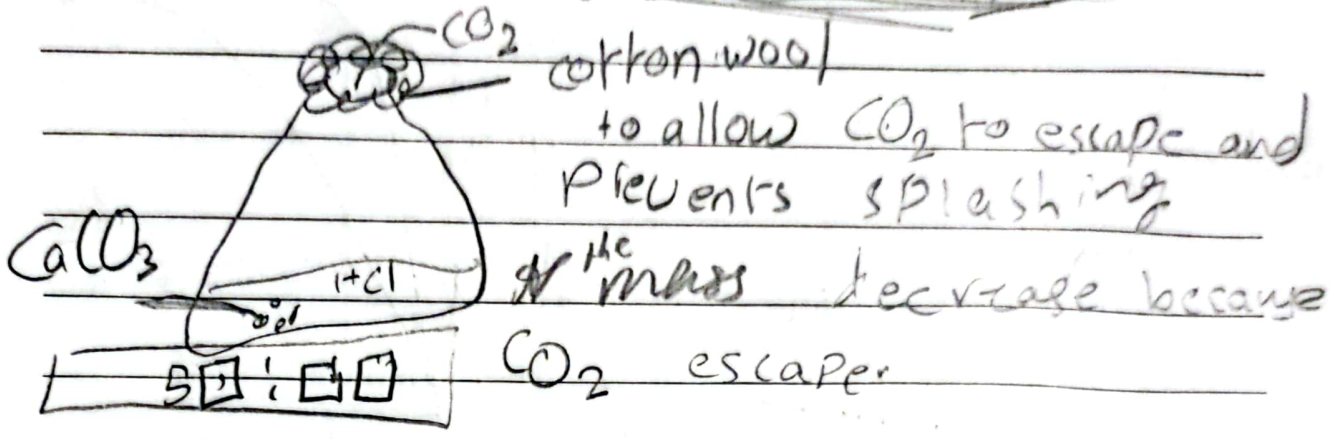 CO₂
cotton wool
to allow CO₂ to escape and
prevents splashing
CaCO₃
HCl
the
mass decrease because
CO₂ escape.